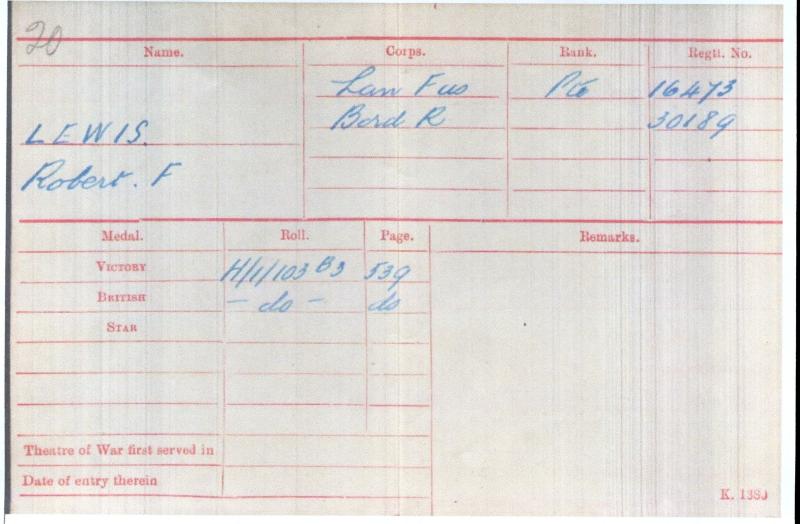 20
Name. Corps. Rank. Regtl. No.
Lan Fus Pte 16473
Bord R 30189
LEWIS.
Robert. F
Medal. Roll. Page. Remarks.
VICTORY H/1/103 B3 539
BRITISH - do - do
STAR
Theatre of War first served in
Date of entry therein
K. 1380